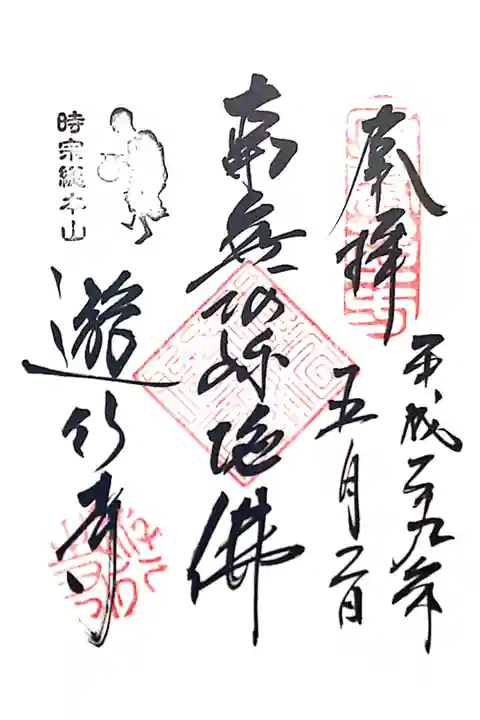 奉拝
平成二十九年
五月二日
南無阿弥陀佛
時宗総本山
遊行寺